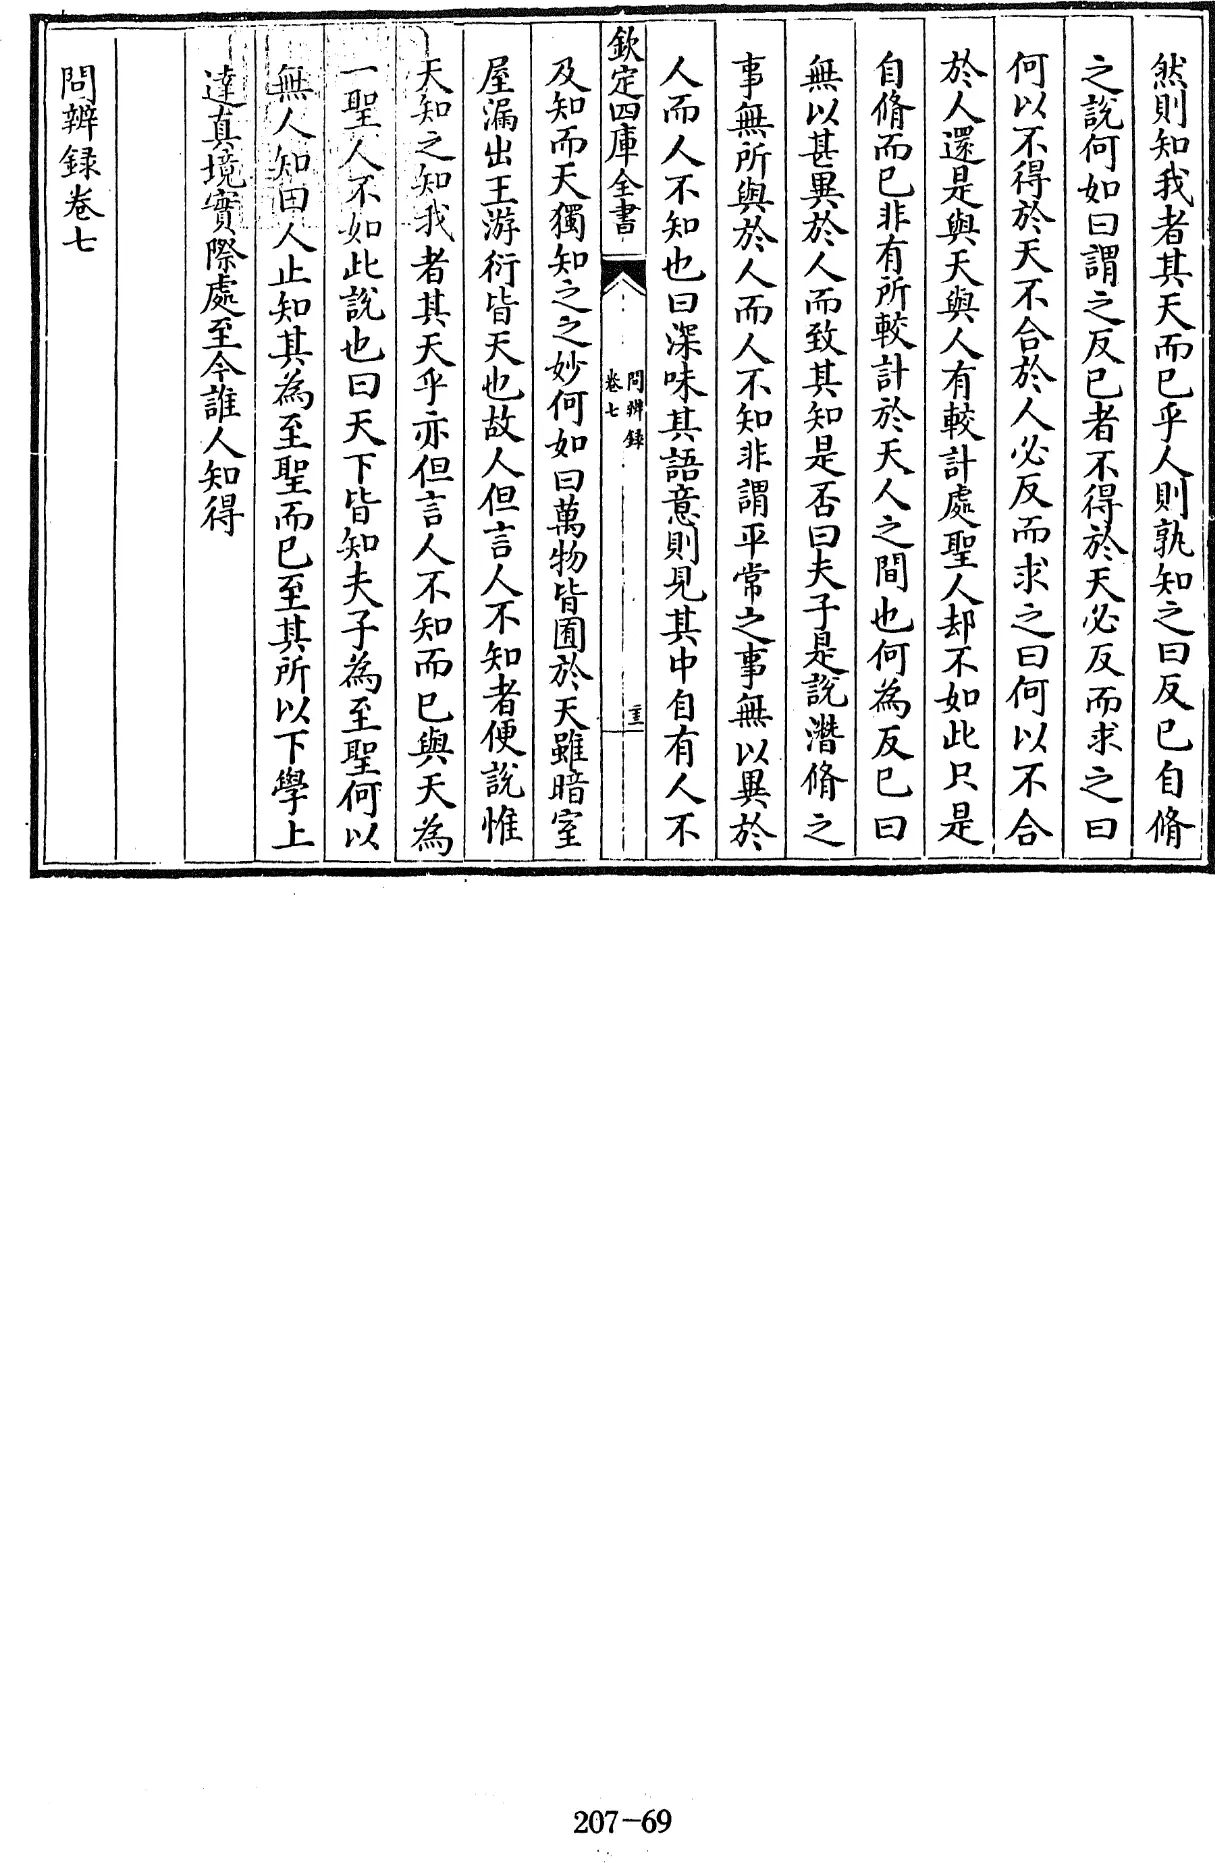 然則知我者其天而已乎人則孰知之曰反已自脩
之説何如曰謂之反已者不得於天必反而求之曰
何以不得於天不合於人必反而求之曰何以不合
於人還是與天與人有較計處聖人却不如此只是
自脩而已非有所較計於天人之間也何為反已曰
無以甚異於人而致其知是否曰夫子是説潛脩之
事無所與於人而人不知非謂平常之事無以異於
人而人不知也曰深味其語意則見其中自有人不
欽定四庫全書
問辨録
卷七
及知而天獨知之之妙何如曰萬物皆囿於天雖暗室
屋漏出王游衍皆天也故人但言人不知者便説惟
天知之知我者其天乎亦但言人不知而已與天為
一聖人不如此説也曰天下皆知夫子為至聖何以
無人知曰人止知其為至聖而已至其所以下學上
達真境實際處至今誰人知得
問辨録卷七
207-69